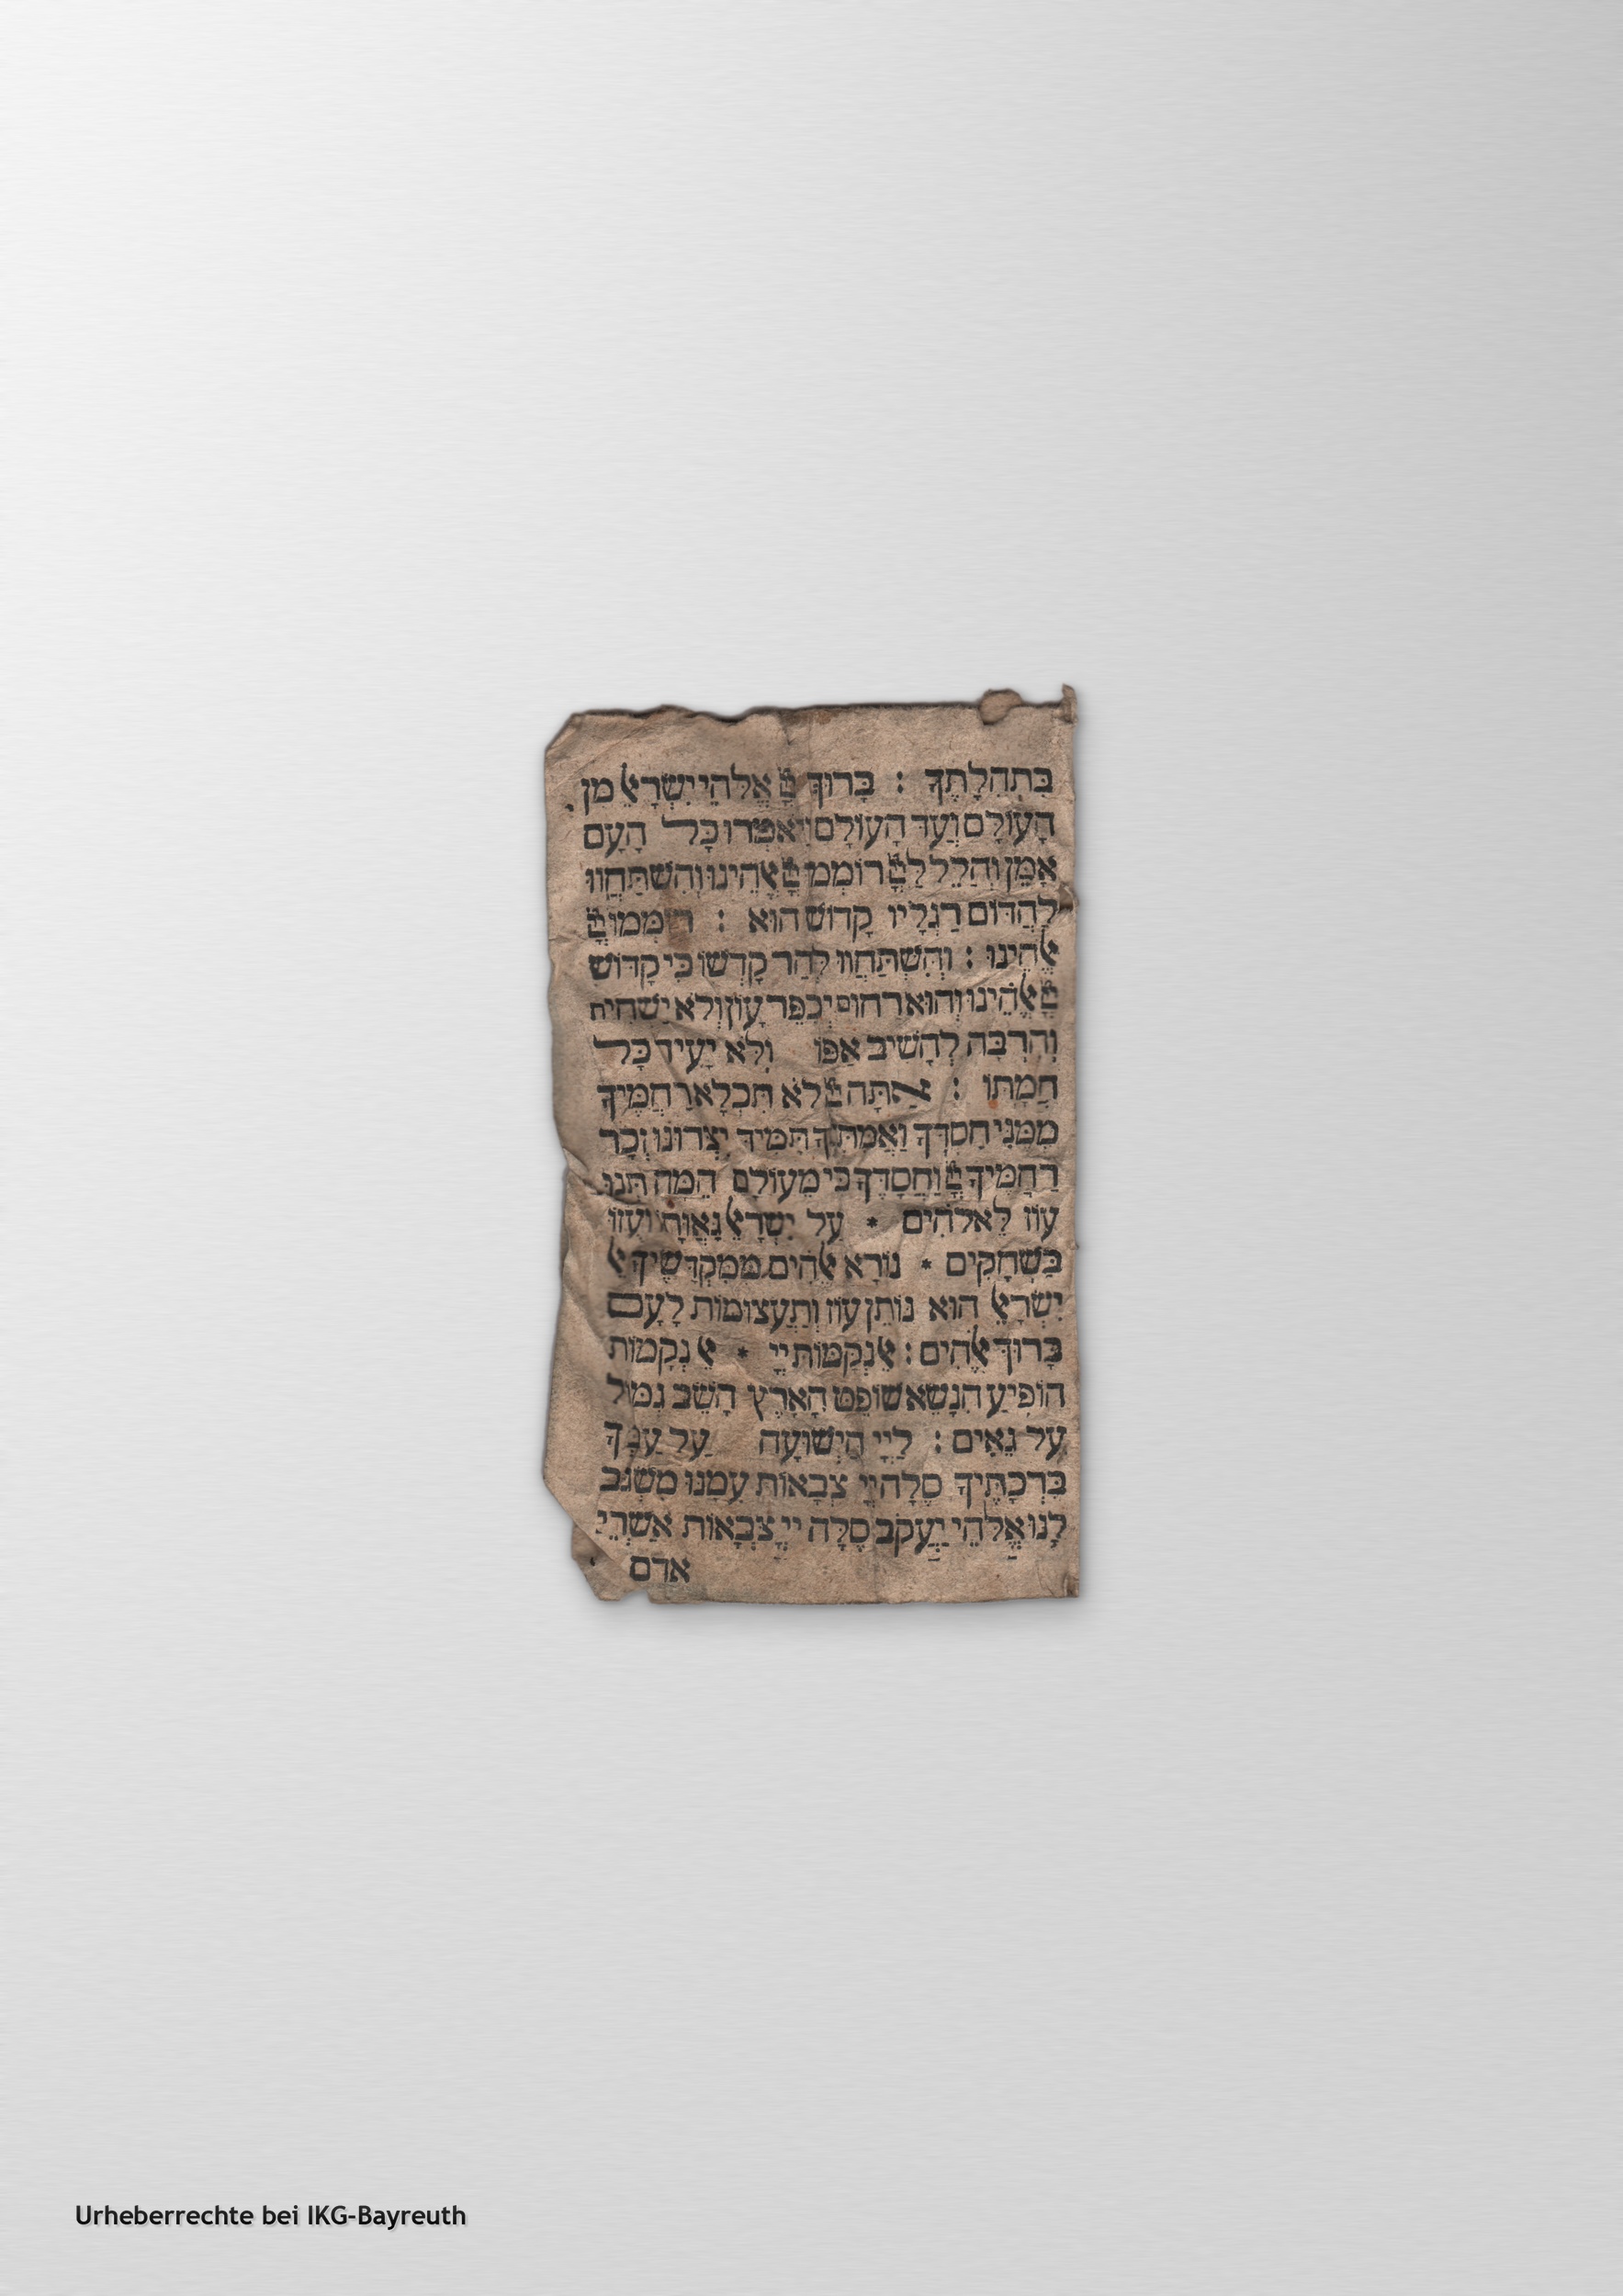 בִּתְהִלָּתֶךָ : בָּרוּךְ יְיָ אֱלֹהֵי יִשְׂרָאֵל מִן
הָעוֹלָם וְעַד הָעוֹלָם וְיֹאמְרוּ כָּל הָעָם
אָמֵן וְהַלֵּל לַיְיָ רוֹמְמוּ יְיָ אֱלֹהֵינוּ וְהִשְׁתַּחֲווּ
לַהֲדוֹם רַגְלָיו קָדוֹשׁ הוּא : רוֹמְמוּ יְיָ
אֱלֹהֵינוּ : וְהִשְׁתַּחֲווּ לְהַר קָדְשׁוֹ כִּי קָדוֹשׁ
יְיָ אֱלֹהֵינוּ וְהוּא רַחוּם יְכַפֵּר עָוֹן וְלֹא יַשְׁחִית
וְהִרְבָּה לְהָשִׁיב אַפּוֹ וְלֹא יָעִיר כָּל
חֲמָתוֹ : אַתָּה יְיָ לֹא תִכְלָא רַחֲמֶיךָ
מִמֶּנִּי חַסְדְּךָ וַאֲמִתְּךָ תָּמִיד יִצְּרוּנוּ זְכֹר
רַחֲמֶיךָ יְיָ וַחֲסָדֶיךָ כִּי מֵעוֹלָם הֵמָּה תְּנוּ
עוֹז לֵאלֹהִים * עַל יִשְׂרָאֵל גַּאֲוָתוֹ וְעֻזּוֹ
בַּשְּׁחָקִים * נוֹרָא אֱלֹהִים מִמִּקְדָּשֶׁיךָ אֵל
יִשְׂרָאֵל הוּא נוֹתֵן עוֹז וְתַעֲצוּמוֹת לָעָם
בָּרוּךְ אֱלֹהִים : אֵל נְקָמוֹת יְיָ * אֵל נְקָמוֹת
הוֹפִיעַ הִנָּשֵׂא שׁוֹפֵט הָאָרֶץ הָשֵׁב גְּמוּל
עַל גֵּאִים : לַיְיָ הַיְשׁוּעָה עַל עַמְּךָ
בִּרְכָתֶיךָ סֶּלָה יְיָ צְבָאוֹת עִמָּנוּ מִשְׂגָּב
לָנוּ אֱלֹהֵי יַעֲקֹב סֶלָה יְיָ צְבָאוֹת אַשְׁרֵי
אדם
Urheberrechte bei IKG-Bayreuth